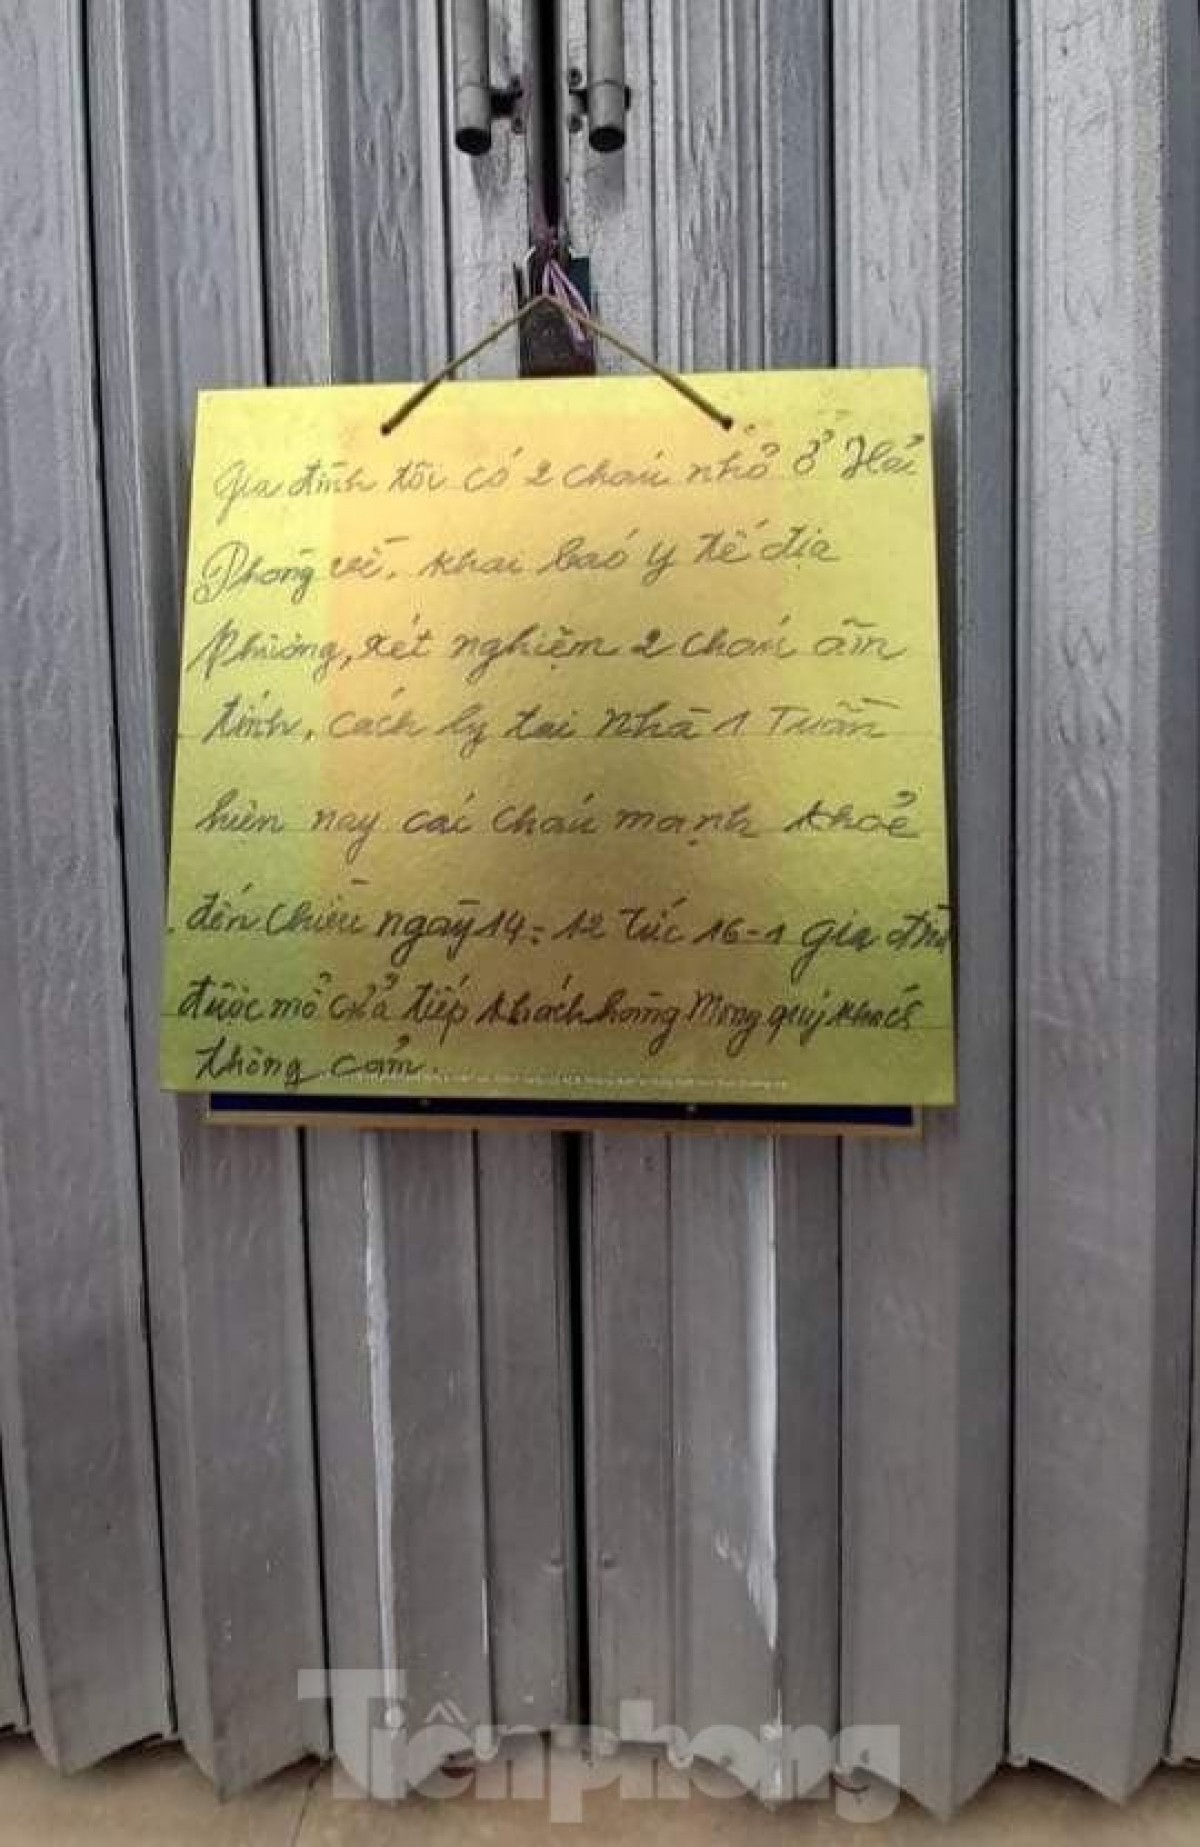 Gia đình tôi có 2 cháu nhỏ ở Hải
Phòng về. khai báo y tế địa
Phương, xét nghiệm 2 cháu âm
tính, cách ly tại nhà 1 Tuần
hiện nay các cháu mạnh khoẻ
đến chiều ngày 14-12 tức 16-1 gia đình
được mở cửa tiếp khách hàng Mong quý khách
thông cảm.
Tiền phong